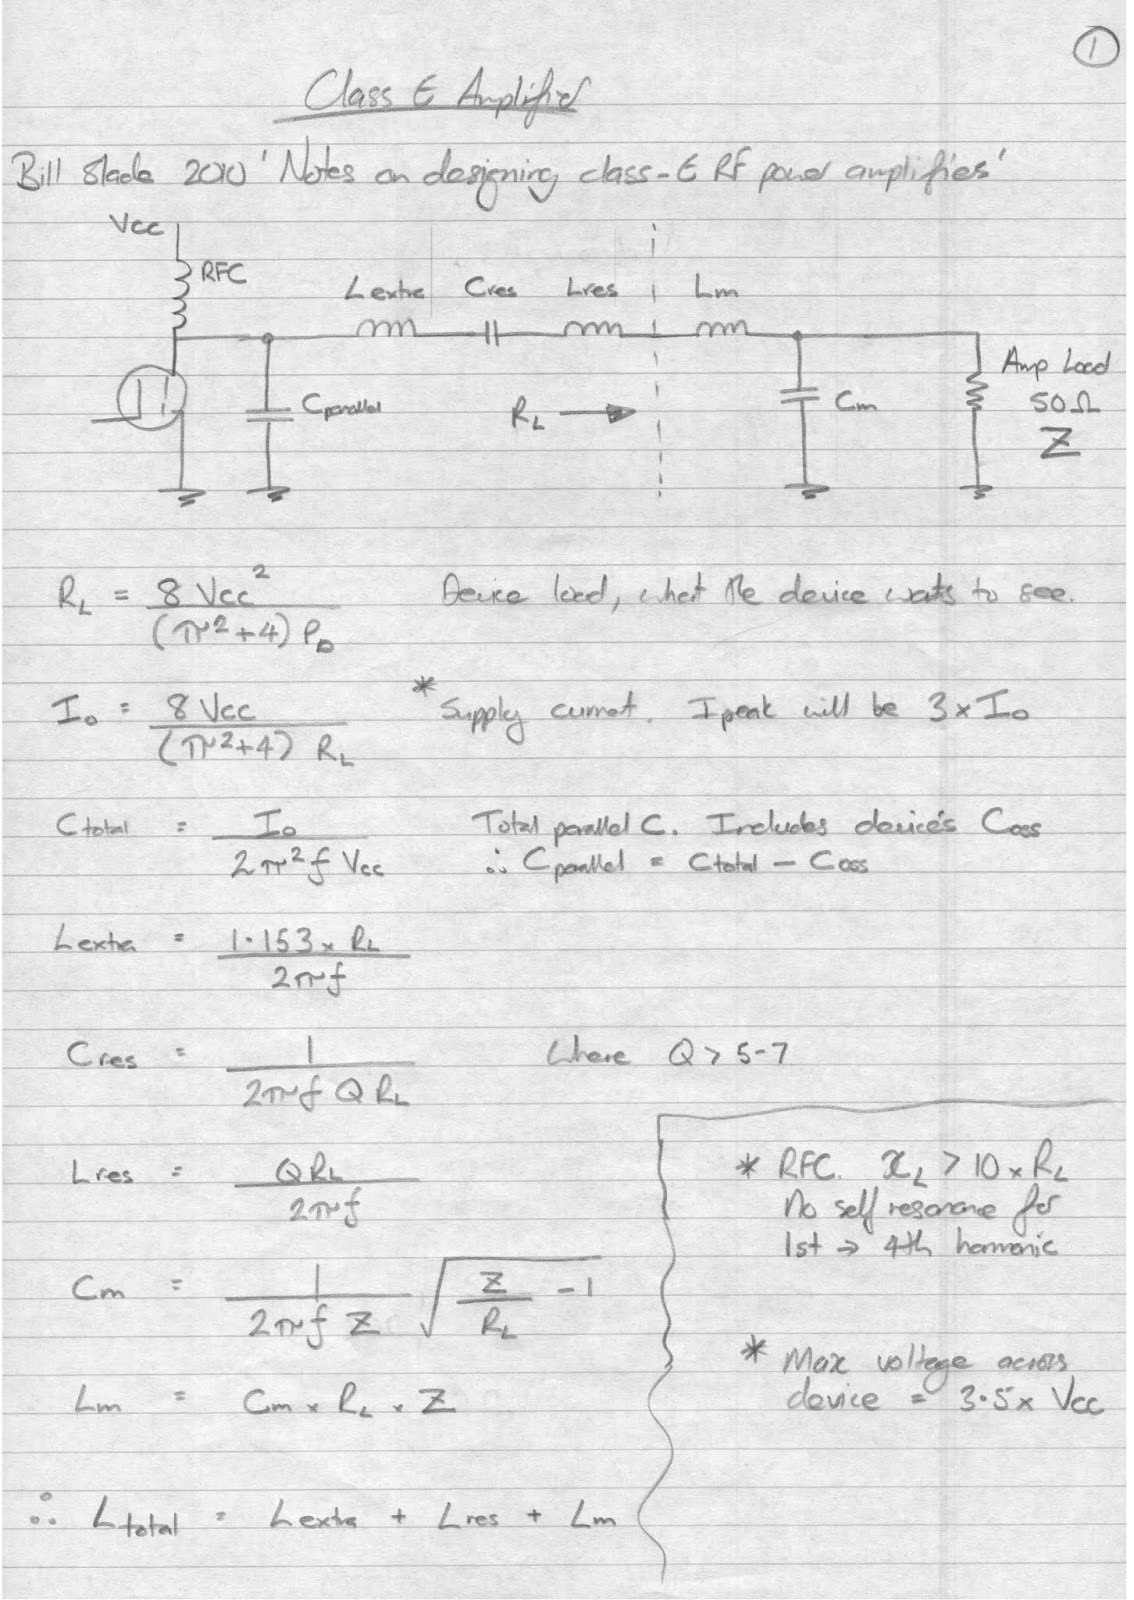 1
Class E Amplifier
Bill Slade 2010 'Notes on designing class-E RF power amplifiers'
Vcc
RFC
Lextra Cres Lres Lm
Cparallel
RL
Cm
Amp Load
50Ω
Z
RL = 8 Vcc² / (π²+4) Po Device load, what the device wants to see.
Io = 8 Vcc / (π²+4) RL * Supply current. Ipeak will be 3 x Io
Ctotal = Io / 2π²f Vcc Total parallel C. Includes device's Coss
∴ Cparallel = Ctotal - Coss
Lextra = 1.153 x RL / 2πf
Cres = 1 / 2πf Q RL Where Q > 5-7
Lres = Q RL / 2πf
* RFC. XL > 10 x RL
No self resonance for
1st → 4th harmonic
Cm = 1 / 2πf Z √(Z / RL - 1)
* Max voltage across
device = 3.5 x Vcc
Lm = Cm x RL x Z
∴ Ltotal = Lextra + Lres + Lm